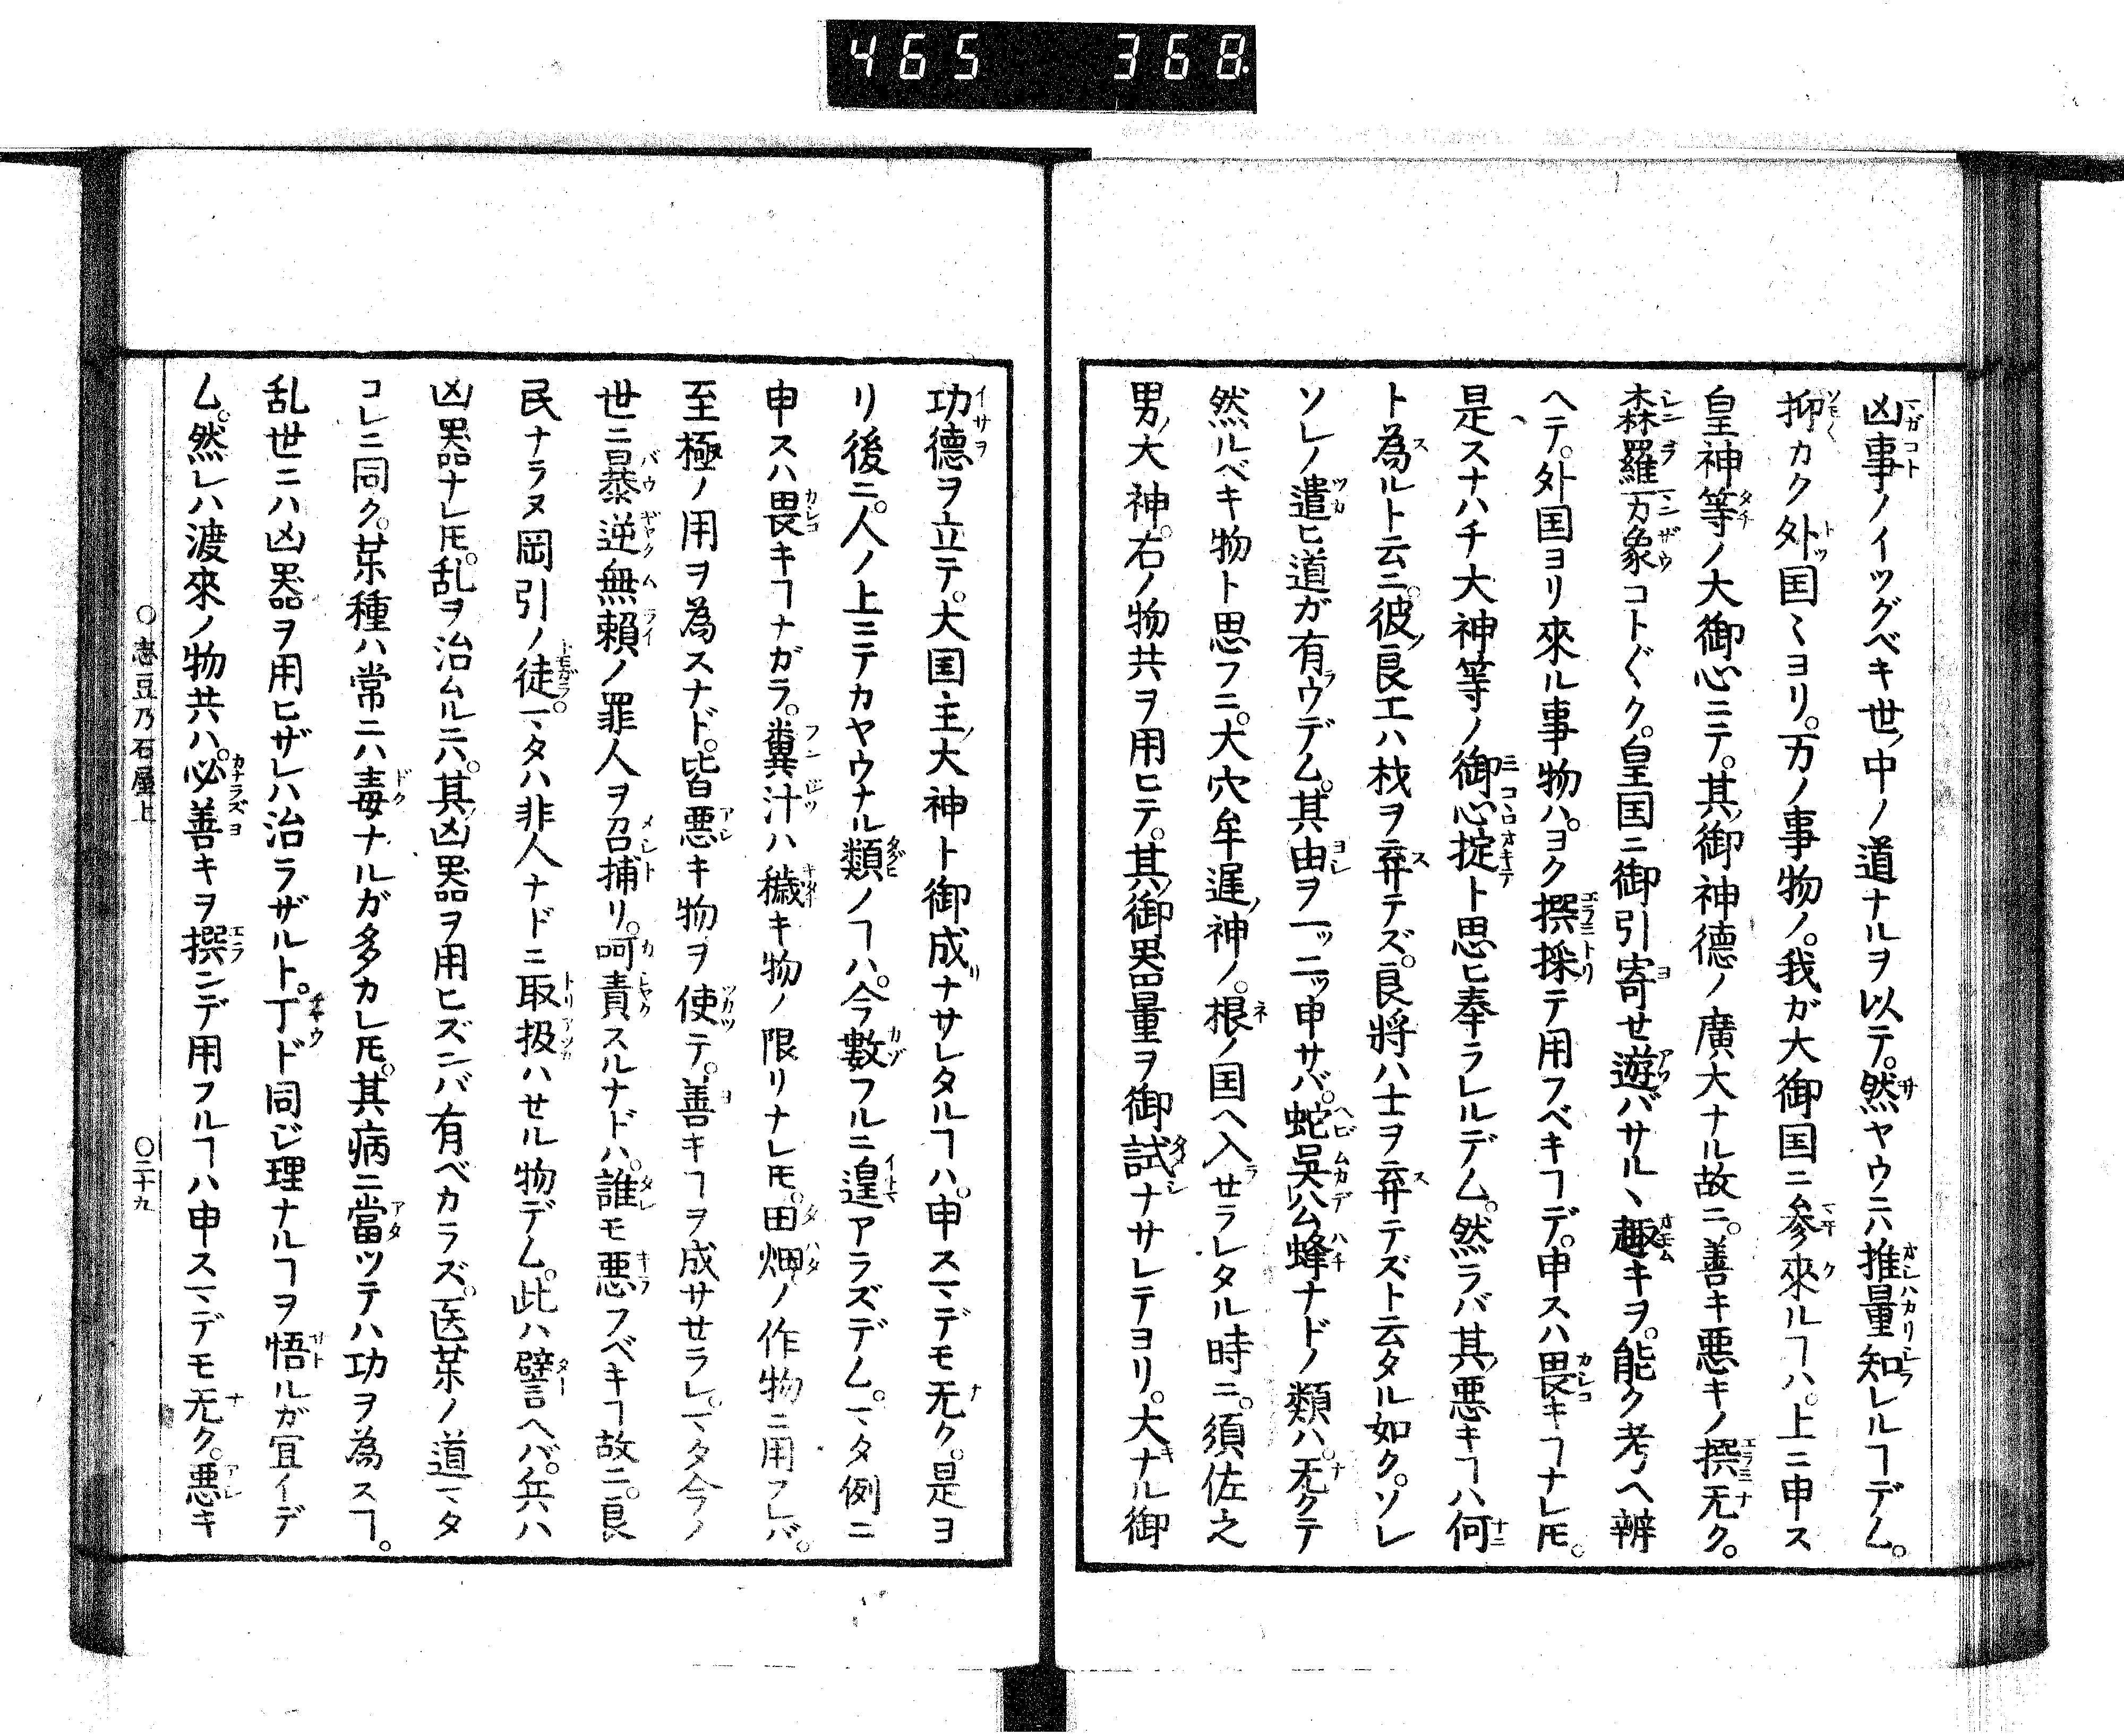 465 368
凶事ノイツグベキ世ノ中ノ道ナルヲ以テ。然ヤウニハ推量知レルヿデム。
抑カク外国〻ヨリ。万ノ事物ノ。我ガ大御国ニ參來ルヿハ。上ニ申ス
皇神等ノ大御心ニテ。其ノ御神德ノ廣大ナル故ニ。善キ悪キノ撰无ク。
森羅万象コトヾク。皇国ニ御引寄せ遊バサルヽ趣キヲ。能ク考ヘ辨
ヘテ。外国ヨリ來ル事物ハ。ヨク撰採テ用フベキヿデ。申スハ畏キヿナレ𪜈。
是スナハチ大神等ノ御心掟ト思ヒ奉ラレルデム。然ラバ其ノ悪キヿハ何
ト為ルト云ニ。彼ノ良工ハ材ヲ弃テズ。良將ハ士ヲ弃テズト云タル如ク。ソレ
ソレノ遣ヒ道ガ有ウデム。其由ヲ一ッ二ッ申サバ。蛇吳公蜂ナドノ類ハ。无クテ
然ルベキ物ト思フニ。大穴牟遲ノ神ノ。根ノ国ヘ入せラレタル時ニ。須佐之
男ノ大神。右ノ物共ヲ用ヒテ。其ノ御器量ヲ御試ナサレテヨリ。大ナル御
功德ヲ立テ。大国主ノ大神ト御成ナサレタルヿハ。申スマデモ无ク。是ヨ
リ後ニ。人ノ上ミテカヤウナル類ノヿハ。今數フルニ遑アラズデム。マタ例ニ
申スハ畏キヿナガラ。糞汁ハ穢キ物ノ限リナレ𪜈。田畑ノ作物ニ用フレバ。
至極ノ用ヲ為スナド。皆悪キ物ヲ使テ。善キヿヲ成サせラレ。マタ今ノ
世ニ暴逆無賴ノ罪人ヲ召捕リ。呵責スルナドハ。誰モ悪フベキヿ故ニ。良
民ナラヌ岡引ノ徒。マタハ非人ナドニ取扱ハせル物デム。此ハ譬ヘバ。兵ハ
凶器ナレ𪜈。乱ヲ治ムルニハ。其ノ凶器ヲ用ヒズンバ有ベカラズ。医薬ノ道マタ
コレニ同ク。薬種ハ常ニハ毒ナルガ多カレ𪜈。其病ニ當ツテハ功ヲ為スヿ。
乱世ニハ凶器ヲ用ヒザレハ治ラザルト。丁ド同じ理ナルヿヲ悟ルガ宜イデ
ム。然レハ渡來ノ物共ハ。必善キヲ撰ンデ用フルヿハ申スマデモ无ク。悪キ
○志豆乃石屋上 ○二十九